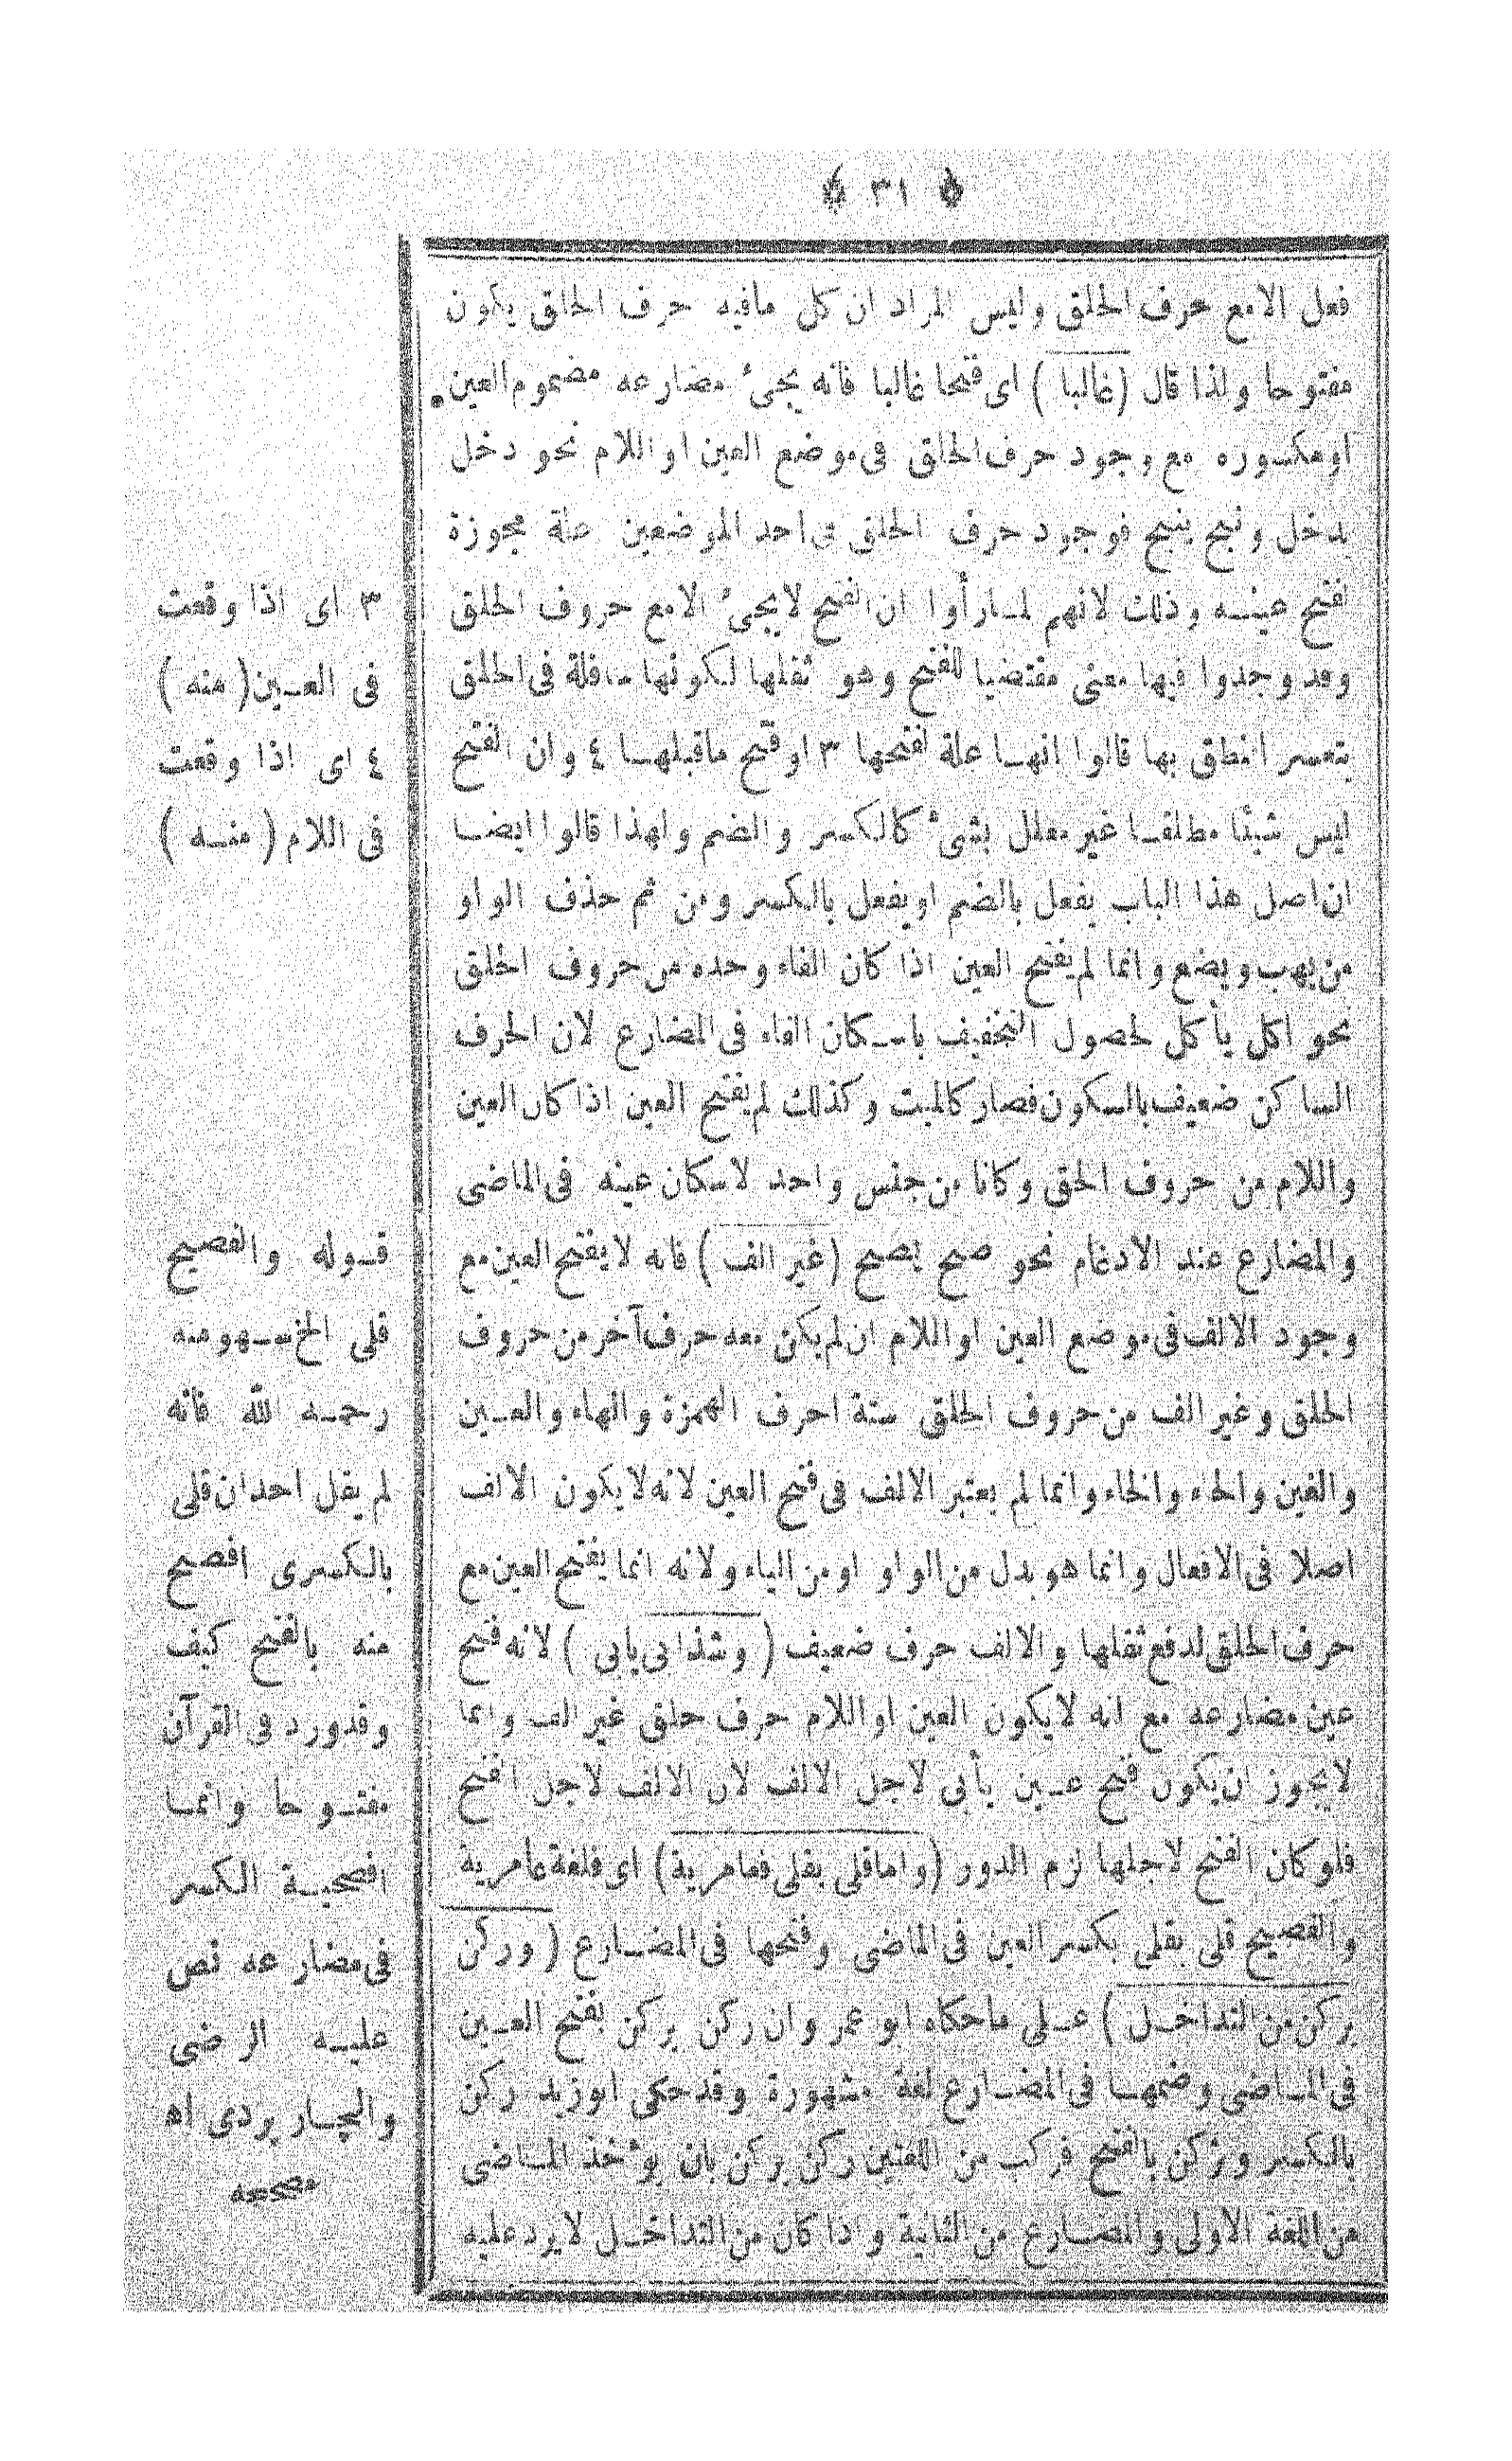 ﴿ ٣١ ﴾
فعل الامع حرف الحلق وليس المراد ان كل مافيه حرف الحلق يكون
مفتوحا ولذا قال (غالبا) اى فتحا غالبا فانه يجىء مضارعه مضموم العين
اومكسوره مع وجود حرف الحلق فى موضع العين او اللام نحو دخل
يدخل ونبح ينبح فوجود حرف الحلق فى احد الموضعين علة مجوزة
لفتح عينه وذلك لانهم لما رأوا ان الفتح لايجىء الامع حروف الحلق
وقد وجدوا فيها معنى مقتضيا للفتح وهو ثقلها لكونها سافلة فى الحلق
يتعسر النطق بها قالوا انها علة لفتحها ٣ او فتح ماقبلها ٤ وان الفتح
ليس شيئا مطلقا غير معلل بشىء كالكسر والضم ولهذا قالوا ايضا
ان اصل هذا الباب يفعل بالضم او يفعل بالكسر ومن ثم حذف الواو
من يهب ويضع وانما لم يفتح العين اذا كان الفاء وحده من حروف الحلق
نحو اكل يأكل لحصول التخفيف باسكان الفاء فى المضارع لان الحرف
الساكن ضعيف بالسكون فصار كالميت وكذلك لم يفتح العين اذا كان العين
واللام من حروف الحق وكانا من جنس واحد لاسكان عينه فى الماضى
والمضارع عند الادغام نحو صح يصح (غير الف) فانه لايفتح العين مع
وجود الالف فى موضع العين او اللام ان لم يكن معه حرف آخر من حروف
الحلق وغير الف من حروف الحلق ستة احرف الهمزة والهاء والعين
والغين والحاء والخاء وانما لم يعتبر الالف فى فتح العين لانه لايكون الالف
اصلا فى الافعال وانما هو بدل من الواو او من الياء ولانه انما يفتح العين مع
حرف الحلق لدفع ثقلها والالف حرف ضعيف (وشذ ابى يأبى) لانه فتح
عين مضارعه مع انه لايكون العين او اللام حرف حلق غير الف وانما
لايجوز ان يكون فتح عين يأبى لاجل الالف لان الالف لاجل الفتح
فلو كان الفتح لاجلها لزم الدور (واما قلى يقلى فعامرية) اى فلغة عامرية
والفصيح قلى يقلى بكسر العين فى الماضى وفتحها فى المضارع (وركن
يركن من التداخل) على ماحكاه ابو عمر وان ركن يركن بفتح العين
فى الماضى وضمها فى المضارع لغة مشهورة وقد حكى ابو زيد ركن
بالكسر ويركن بالفتح فركب من اللغتين ركن يركن بان يؤخذ الماضى
من اللغة الاولى والمضارع من الثانية واذا كان من التداخل لايرد عليه
٣ اى اذا وقعت
فى العين (منه)
٤ اى اذا وقعت
فى اللام (منه)
قوله والفصيح
قلى الخ سهو منه
رحمه الله فانه
لم يقل احد ان قلى
بالكسرى افصح
منه بالفتح كيف
وقدورد فى القرآن
مفتوحا وانما
افصحية الكسر
فى مضارعه نص
عليه الرضى
والچار پردى اه
مصححه